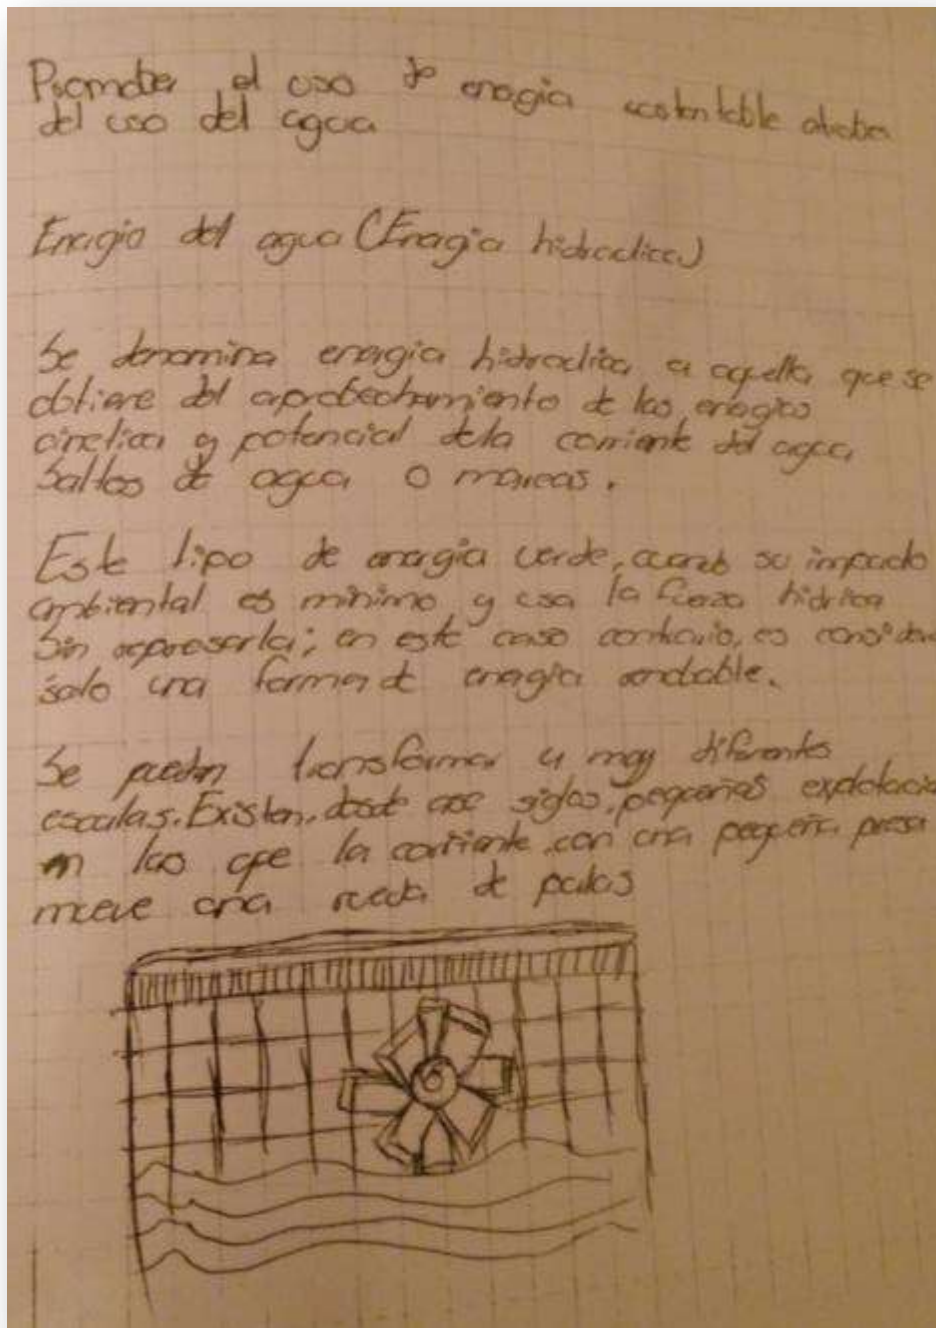 Promober el uso de enegia sostentable atrabes
del uso del agua
Enegia del agua (Enegia hidraulica)
Se denomina energia hidraulica a aquella que se
obtiene del aprobechamiento de las enegias
cinetica y potencial dela corriente del agua
Saltos de agua o mareas.
Este tipo de energia verde, cuando su impacto
ambiental es minimo y usa la fuerza hidrica
Sin represarla; en este caso contrario, es considera
solo una forma de enegia
Se pueden transformar a muy diferentes
escalas. Existen, desde ace siglos, pequeñas explotacio
en las que la corriente, con una pequeña presa
mueve una rueda de palas